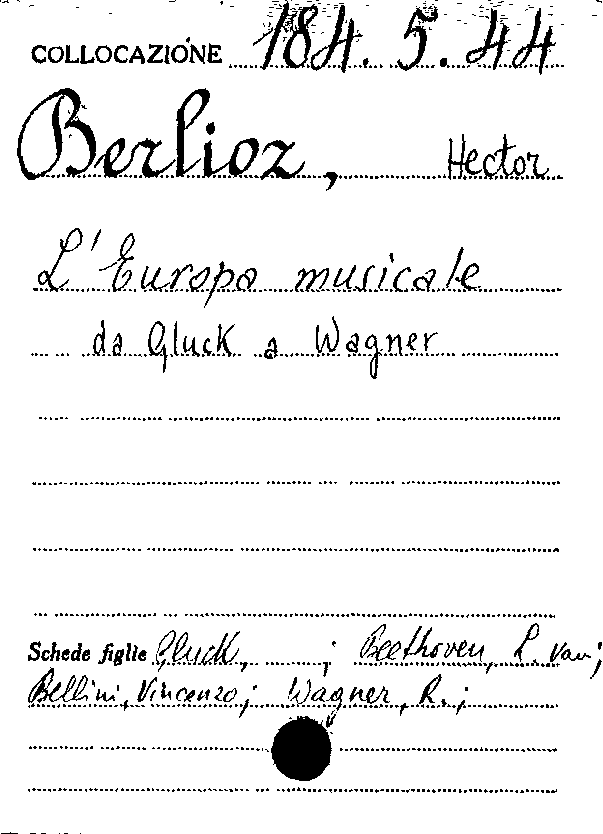 COLLOCAZIONE 184. 5. 44
Berlioz, Hector
L'Europa musicale
da Gluck a Wagner
Schede figlie Gluck, ; Beethoven, L. van;
Bellini, Vincenzo; Wagner, R.;